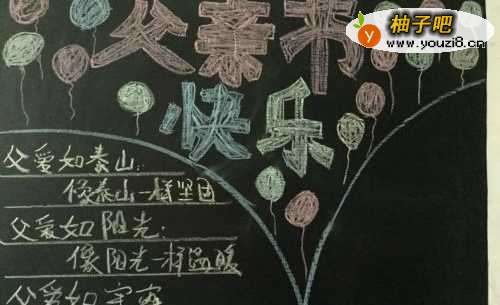 柚子吧
www.youzi8.com
父亲节
快乐
父爱如泰山:
像泰山一样坚固
父爱如阳光:
像阳光一样温暖
父爱如宇